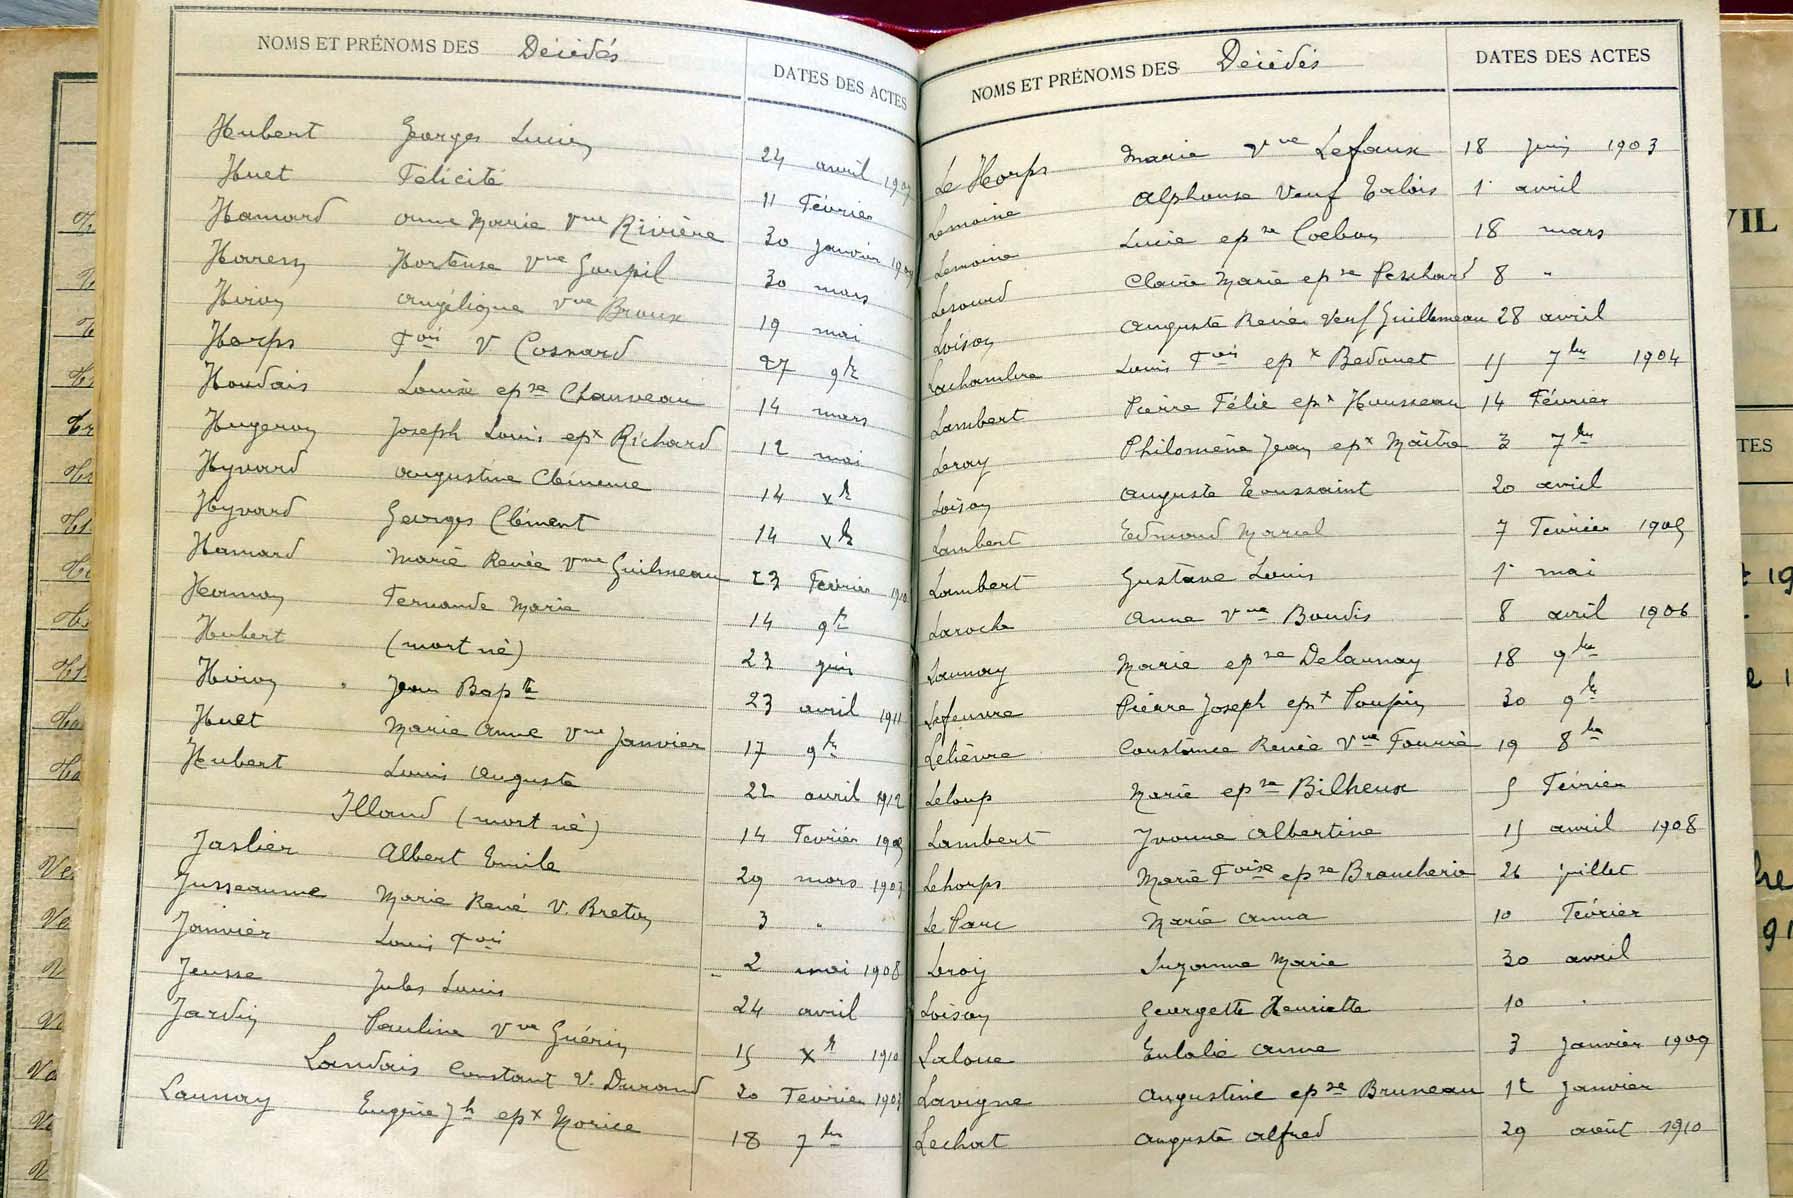 NOMS ET PRÉNOMS DES Décédés DATES DES ACTES
Hubert Georges Lucien 24 avril
Huet Félicité 11 Février
Hamard Anne Marie Vve Rivière 30 janvier
Hortense Vve Goupil 30 mars
Hivon Angélique Vve Broux 19 mai
Horps Fois V. Cosnard 27 9bre
Houdais Louise epse Chauveau 14 mars
Hugeron Joseph Louis epx Richard 12 mai
Hyvard Augustine Clémence 14 xbre
Hyvard Georges Clément 14 xbre
Hamard Marie Renée Vve Guilmeau 23 Février 1910
Hamon Fernande Marie 14 9bre
Hubert (mort né) 23 juin
Hivon Jean Bapte 23 avril 1911
Huet Marie Anne Vve Janvier 17 9bre
Hubert Louis Auguste 22 avril 1912
Illand (mort né) 14 Février
Jaslier Albert Emile 29 mars 1903
Jusseaume Marie René V. Breton 3 "
Janvier Louis Fois 2 mai 1908
Jeusse Jules Louis 24 avril
Jardin Pauline Vve Guérin 15 Xbre 1910
Landais Constant V. Durand 20 Février 1903
Launay Eugène Jh epx Morice 18 7bre
NOMS ET PRÉNOMS DES Décédés DATES DES ACTES
Le Horps Marie Vve Lefaux 18 juin 1903
Lemoine Alphonse Veuf Talois 1er avril
Lemoine Lucie epse Coebon 18 mars
Lesourd Claire Marie epse Peschard 8 "
Loison Auguste René Veuf Guillemeau 28 avril
Lachambre Louis Fois epx Bedouet 15 7bre 1904
Lambert Pierre Félix epx Housseau 14 Février
Leroy Philomène Jean epx Maître 3 7bre
Loison Auguste Toussaint 20 avril
Lambert Edmond Marcel 7 Février 1905
Lambert Gustave Louis 1er mai
Laroche Anne Vve Boudis 8 avril 1906
Launay Marie epse Delaunay 18 9bre
Lefeuvre Pierre Joseph epx Poupin 30 9bre
Lelièvre Constance Renée Vve Fourré 19 8bre
Leloup Marie epse Bilheux 5 Février
Lambert Yvonne Albertine 15 avril 1908
Lehorps Marie Foise epse Brancherie 26 juillet
Le Parc Marie Anna 10 Février
Leroy Suzanne Marie 30 avril
Loison Georgette Henriette 10 "
Laloue Eulalie Anne 3 Janvier 1909
Lavigne Augustine epse Bruneau 12 Janvier
Lechat Auguste Alfred 29 août 1910
VIL
TES